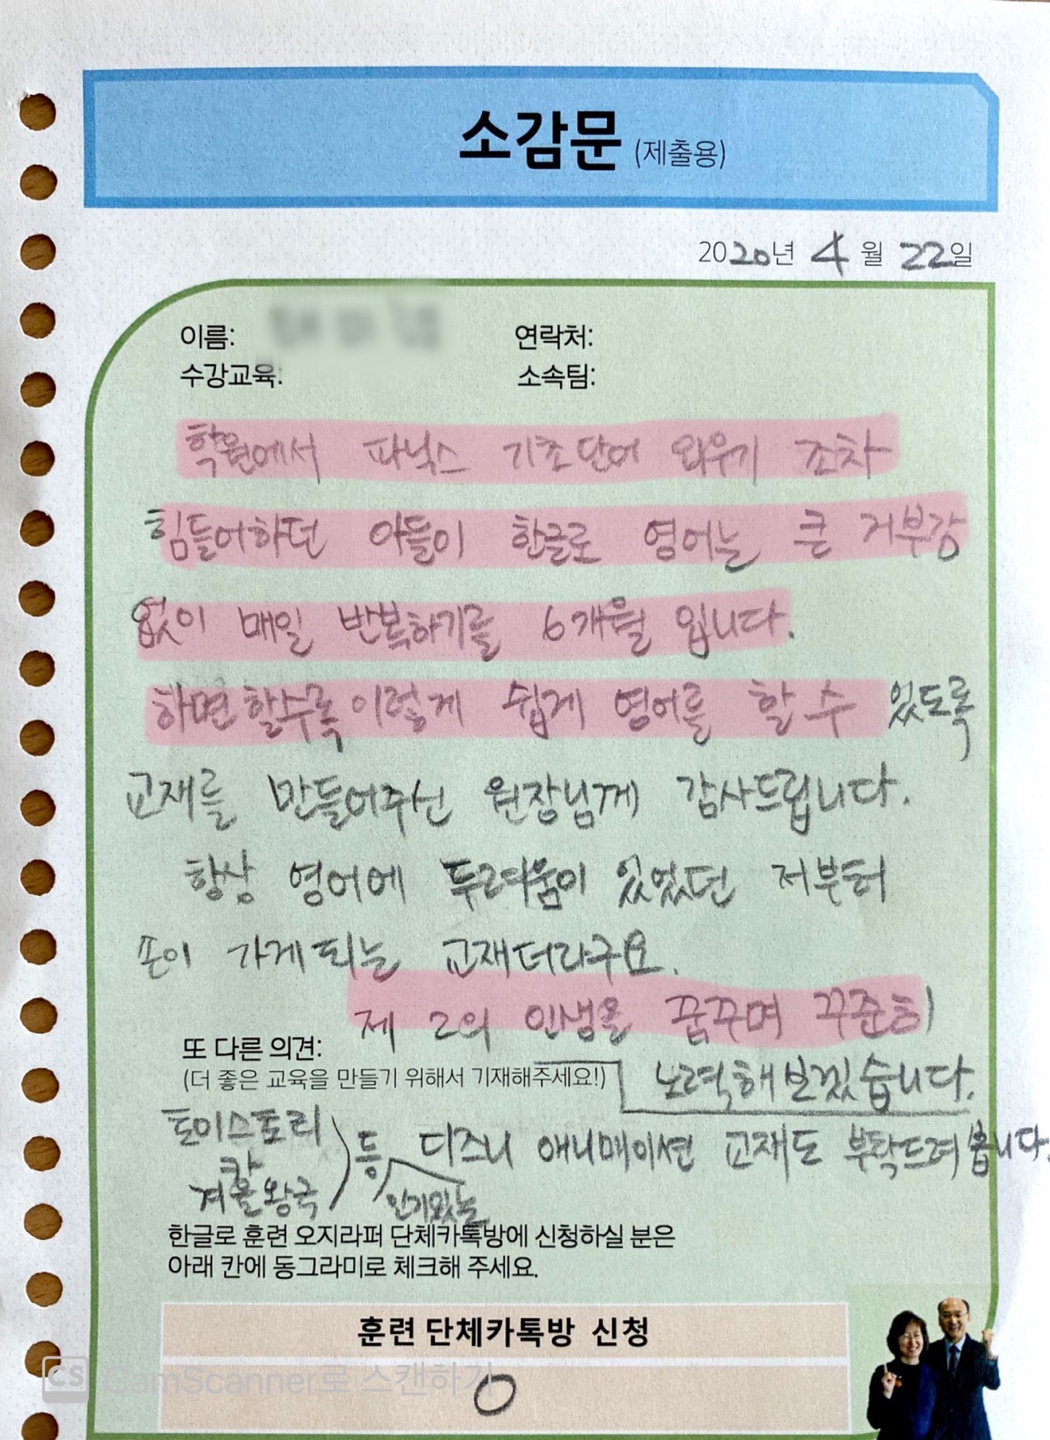 소감문 (제출용)
2020년 4월 22일
이름:
연락처:
수강교육:
소속팀:
학원에서 파닉스 기초단어 외우기 조차
힘들어하던 아들이 한글로 영어는 큰 거부감
없이 매일 반복하기를 6개월 입니다.
하면할수록 이렇게 쉽게 영어를 할 수 있도록
교재를 만들어주신 원장님께 감사드립니다.
항상 영어에 두려움이 있었던 저부터
손이 가게되는 교재더라구요.
제 2의 인생을 꿈꾸며 꾸준히
노력해보겠습니다.
또 다른 의견:
(더 좋은 교육을 만들기 위해서 기재해주세요!)
토이스토리
카
겨울왕국
등 디즈니 애니메이션 교재도 부탁드려 봅니다.
인기있는
한글로 훈련 오지라퍼 단체카톡방에 신청하실 분은
아래 칸에 동그라미로 체크해 주세요.
훈련 단체카톡방 신청
O
CS CamScanner로 스캔하기